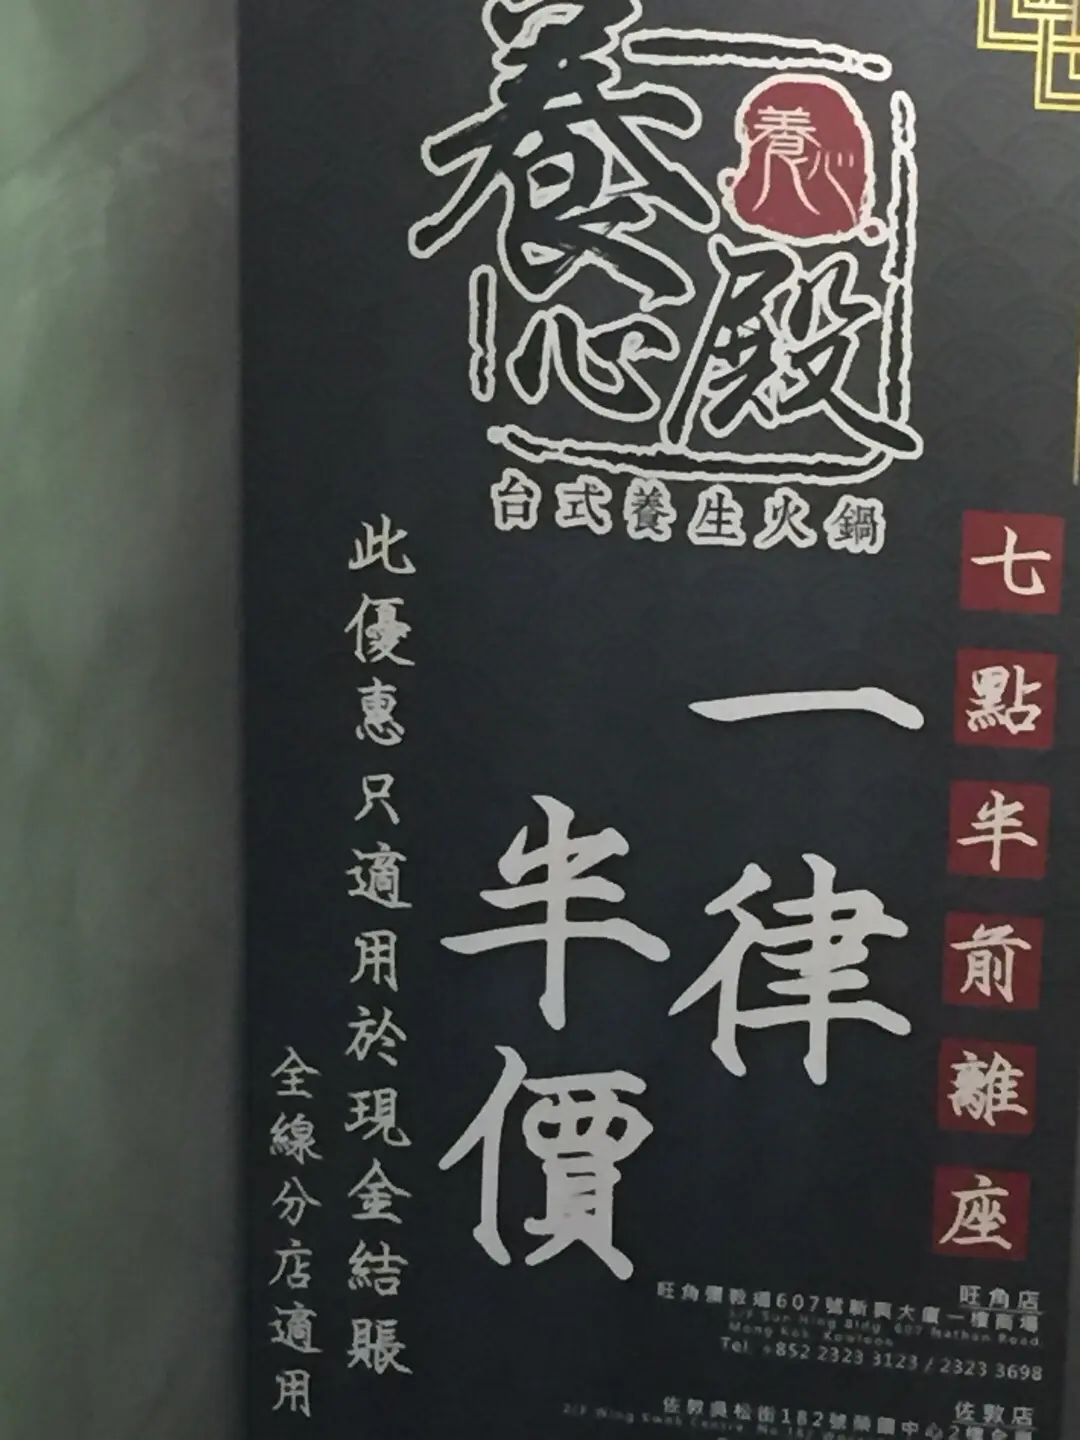 養心殿
養心
台式養生火鍋
七點半前離座
一律
半價
此優惠只適用於現金結賬
全線分店適用
旺角店
旺角彌敦道607號新興大廈一樓商場
1/F Sun Hing Bldg, 607 Nathan Road,
Mong Kok, Kowloon
Tel: +852 2323 3123 / 2323 3698
佐敦店
佐敦吳松街182號榮國中心2樓全層